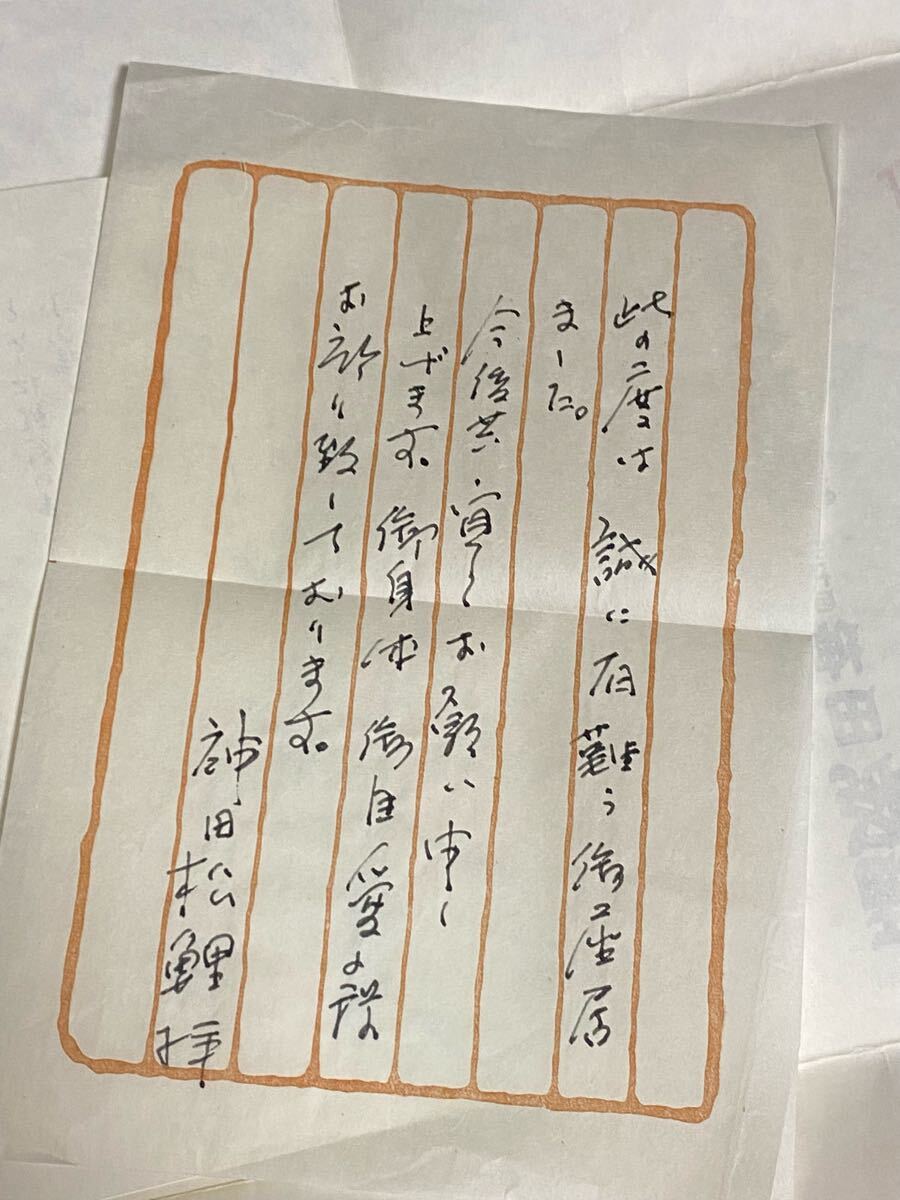 此の度は 誠に有難う御座居
ました。
今後共 宜しくお願い申し
上げます。御身体 御自愛の程
お祈り致しております。
神田松鯉 拝